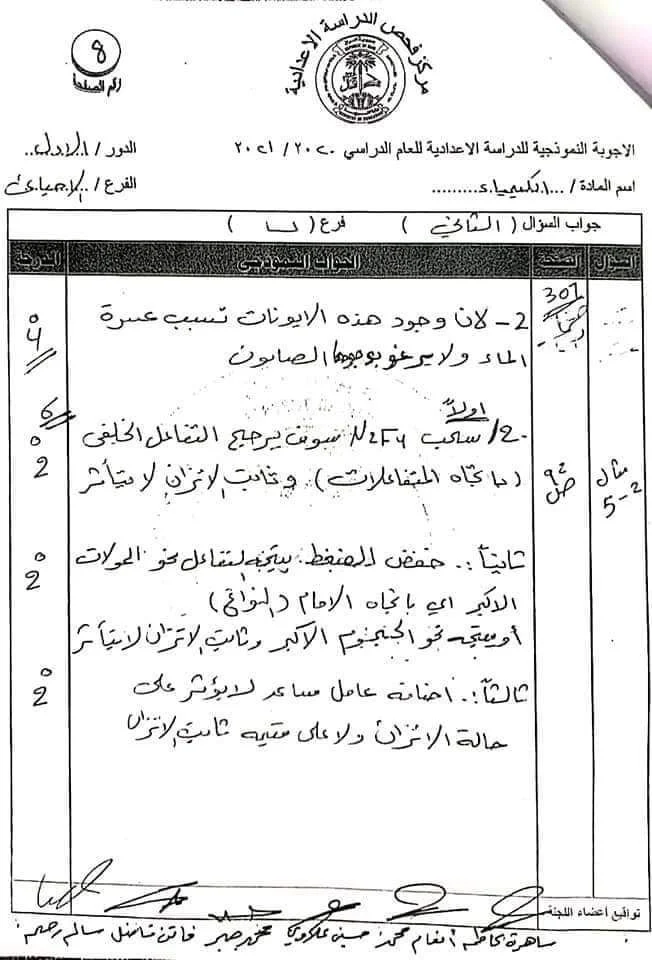 8
رقم الصفحة
مركز فحص الدراسة الاعدادية
الاجوبة النموذجية للدراسة الاعدادية للعام الدراسي ٢٠٢٠ / ٢٠٢١
الدور / الاول
اسم المادة / ...الكيمياء.........
الفرع / الاحيائي
جواب السؤال ( الثاني ) فرع (
السؤال الصفحة الجواب النموذجي الدرجة
301
2- لان وجود هذه الايونات تسبب عسرة
4
الماء ولا يرغو بوجودها الصابون
6
اولاً
2/ سحب N2F4 سوف يرجح التفاعل الخلفي
2
(باتجاه المتفاعلات) وثابت الاتزان لا يتأثر
مثال 2-5
ص 92
ثانياً:. خفض الضغط يتجه التفاعل نحو المولات
2
الاكبر اي باتجاه الامام (النواتج)
أو يتجه نحو الحجوم الاكبر وثابت الاتزان لا يتأثر
ثالثاً:. اضافة عامل مساعد لا يؤثر على
2
حالة الاتزان ولا على قيمة ثابت الاتزان
تواقيع اعضاء اللجنة